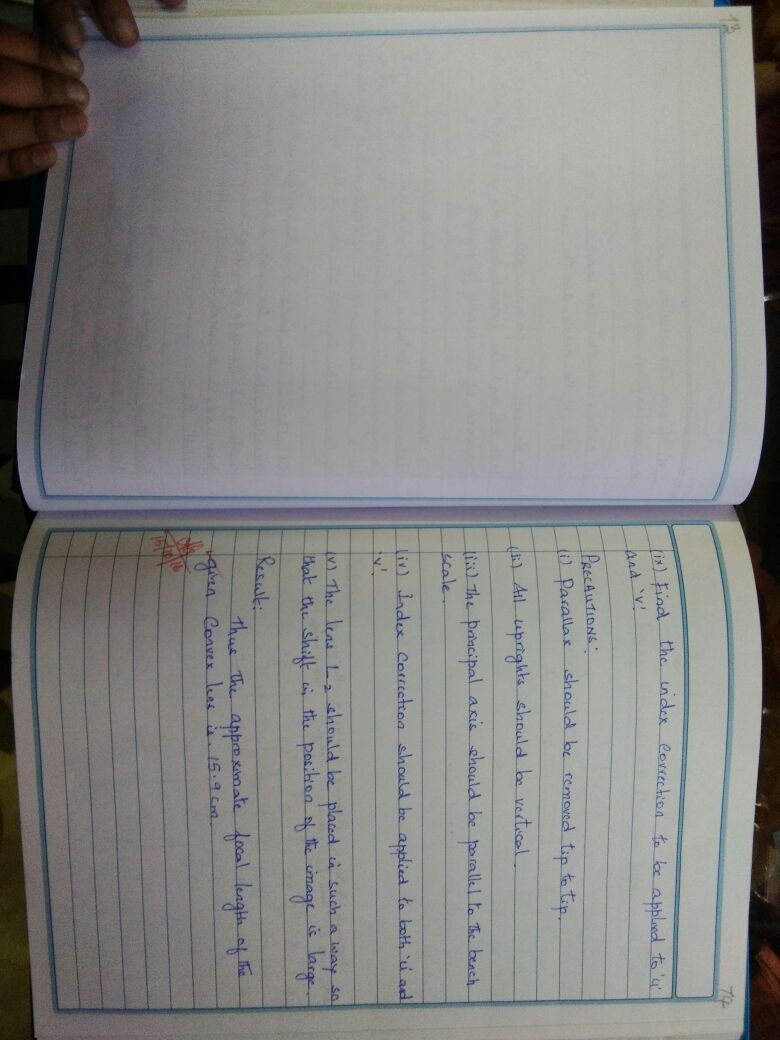 73
74
(ix) Find the index correction to be applied to 'u'
and 'v'.
PRECAUTIONS:
(i) Parallax should be removed tip to tip.
(ii) All uprights should be vertical.
(iii) The principal axis should be parallel to the bench
scale.
(iv) Index correction should be applied to both 'u' and
'v'.
(v) The lens L2 should be placed in such a way so
that the shift in the position of the image is large.
Result:
Thus The approximate focal length of the
given Convex lens is 15.9 cm.